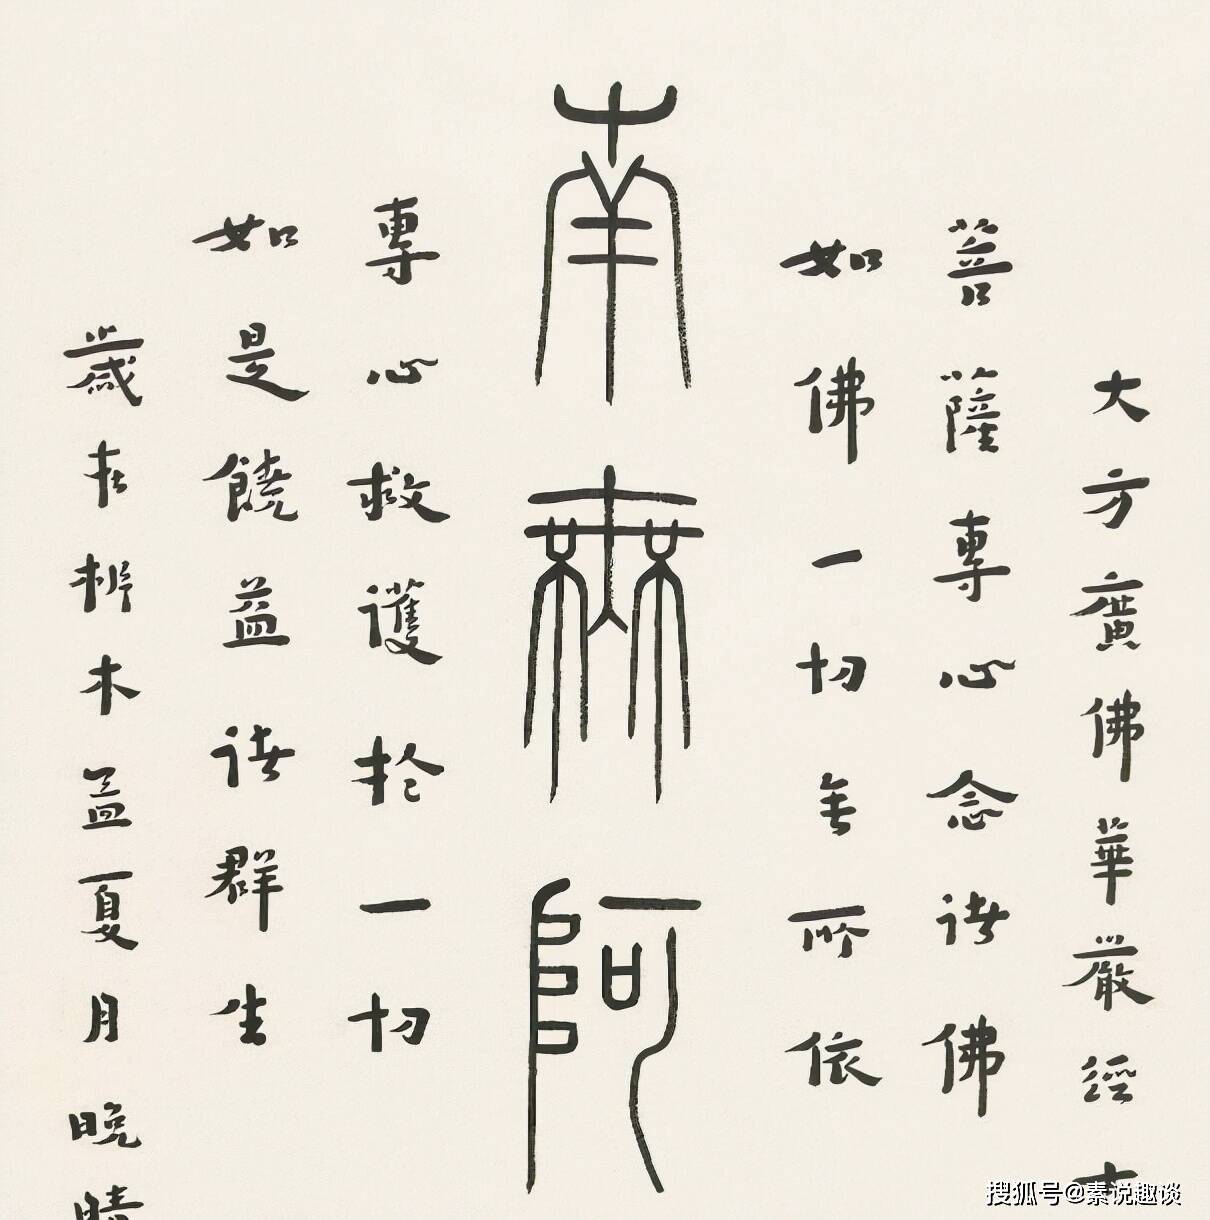 大方廣佛華嚴經
菩薩專心念諸佛
如佛一切無所依
南無阿
專心救護於一切
如是饒益諸群生
歲在析木孟夏月晚晴
搜狐号@素说趣谈